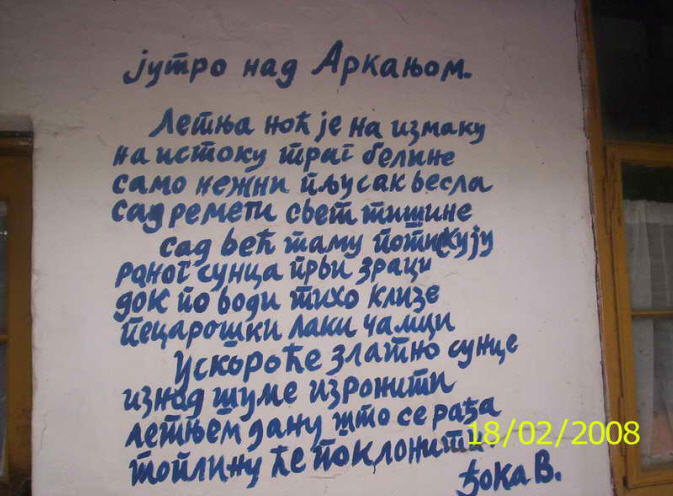 јутро над Аркањом.
Летња ноћ је на измаку
на истоку траг белине
само нежни пљусак весла
сад ремети свет тишине
сад већ таму потискују
раног сунца први зраци
док по води тихо клизе
пецарошки лаки чамци
ускоро ће златно сунце
изнад шуме изронити
летњем дану што се рађа
топлину ће поклонити.
Ђока В.
18/02/2008